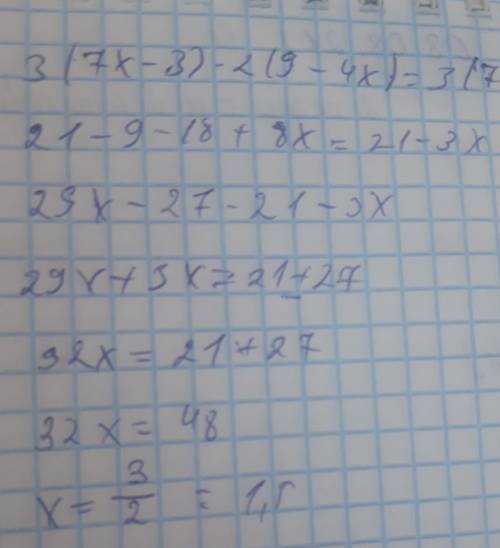 3(7x-3)-2(9-4x)=3(7
21-9-18+8x=21-3x
29x-27-21-3x
29x+3x=21+27
32x=21+27
32x=48
x=3/2=1,5